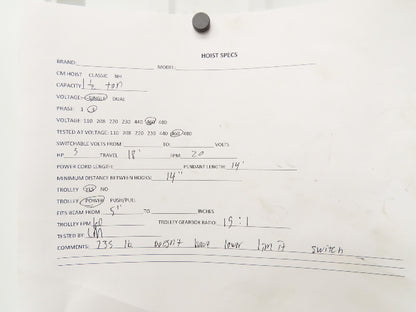 HOIST SPECS
BRAND: MODEL:
CM HOIST CLASSIC NH
CAPACITY 1 ½ ton
VOLTAGE: SINGLE DUAL
PHASE: 1 3
VOLTAGE: 110 208 220 230 440 460 480
TESTED AT VOLTAGE: 110 208 220 230 440 460 480
SWITCHABLE VOLTS FROM TO: VOLTS
HP 3 TRAVEL 18' FPM 20
POWER CORD LENGTH: PENDANT LENGTH: 14'
MINIMUM DISTANCE BETWEEN HOOKS: 14"
TROLLEY YES NO
TROLLEY POWER PUSH/PULL
FITS BEAM FROM 5" TO INCHES
TROLLEY FPM TROLLEY GEARBOX RATIO: 15:1
TESTED BY:
COMMENTS: 235 lb doesn't have lower limit switch